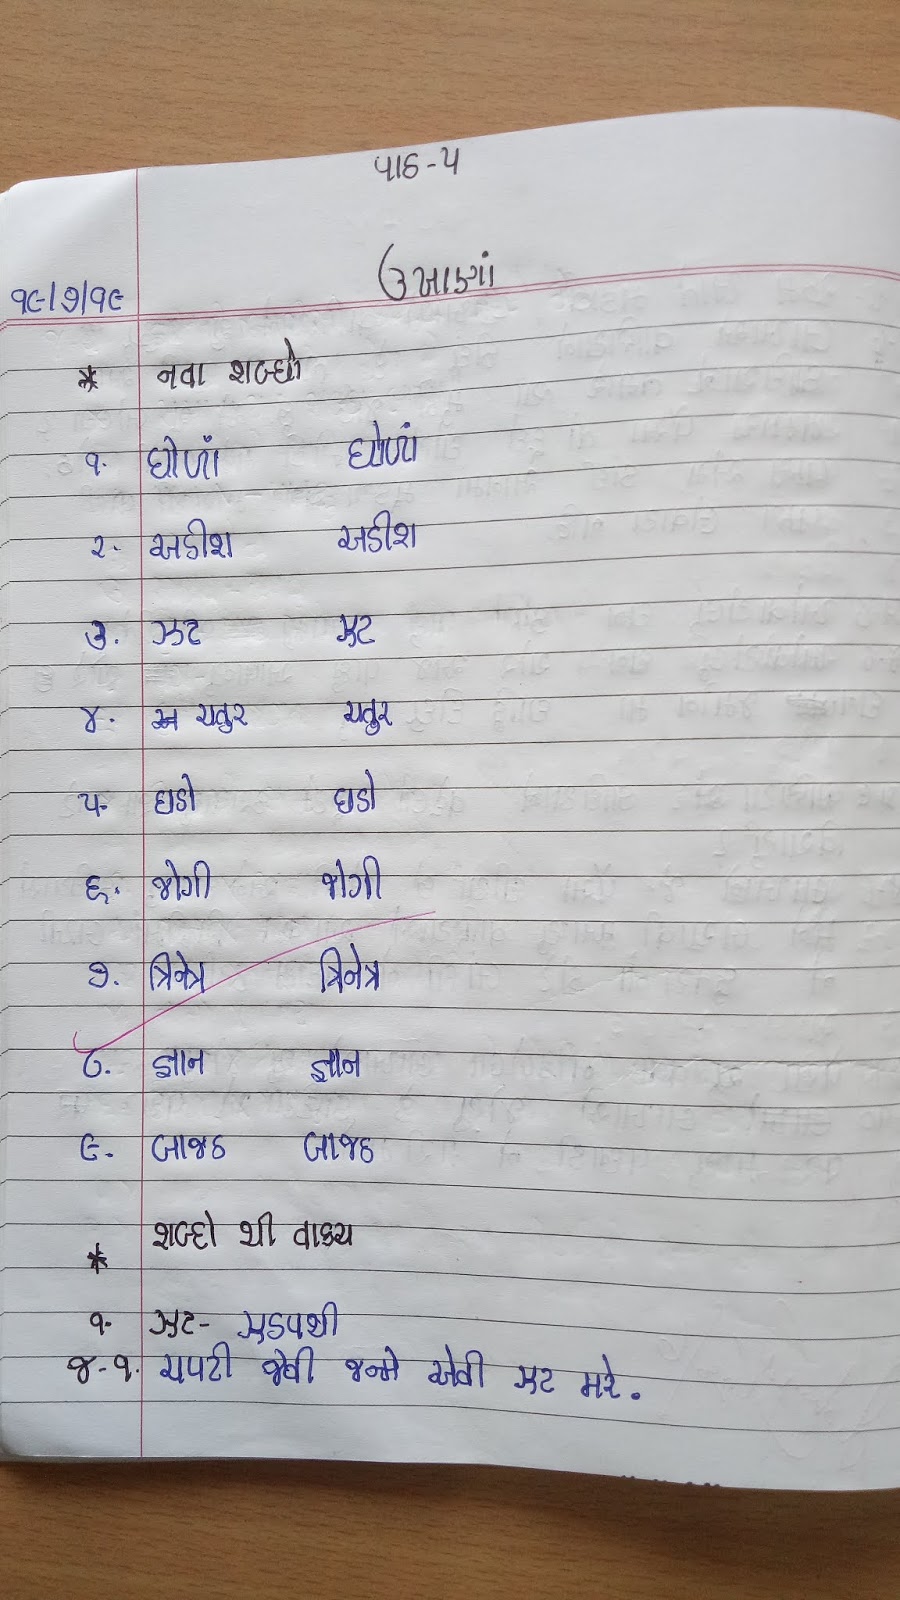 પાઠ-૫
ઉખાણાં
૧૯/૭/૧૯
* નવા શબ્દો
૧. ધોળાં ધોળાં
૨. અડીશ અડીશ
૩. ઝટ ઝટ
૪. ચતુર ચતુર
૫. ઘડો ઘડો
૬. જોગી જોગી
૭. ત્રિનેત્ર ત્રિનેત્ર
૮. જ્ઞાન જ્ઞાન
૯. બાજઠ બાજઠ
* શબ્દો થી વાક્ય
૧. ઝટ- ઝડપથી
જ-૧. ચપટી જેવી જન્મે એવી ઝટ મરે.